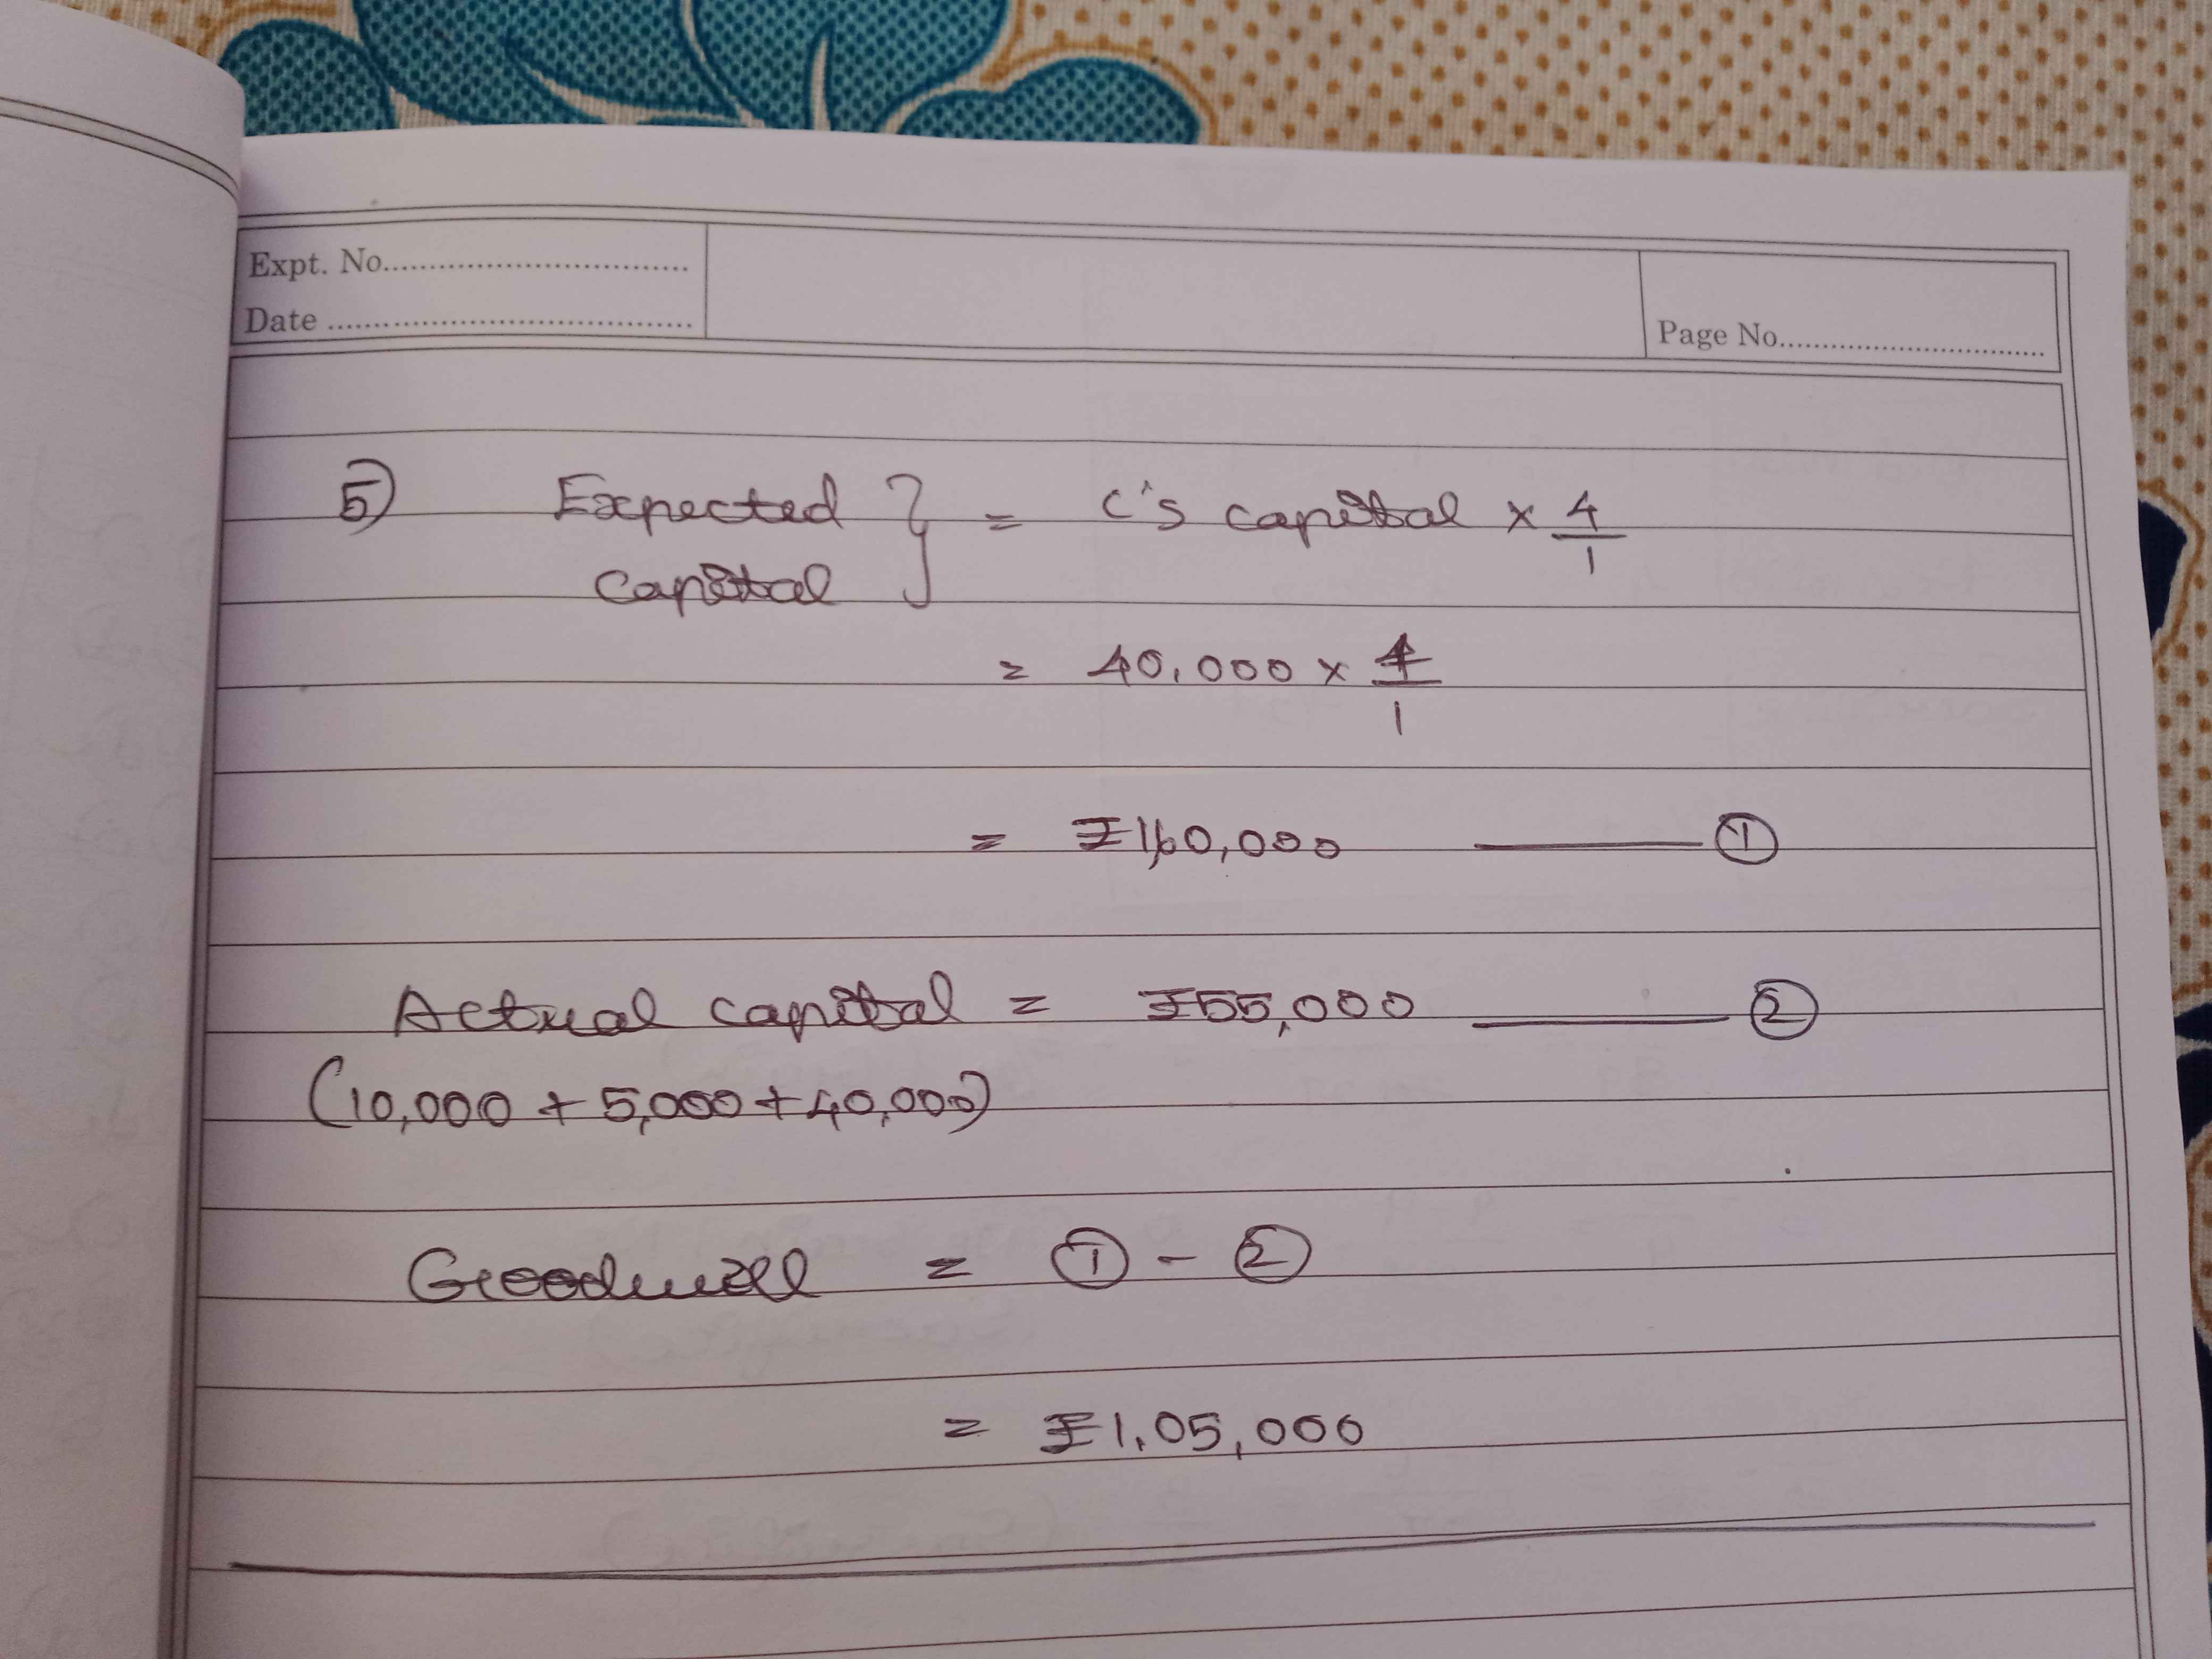 Expt. No..............................
Date ....................................
Page No..............................
5) Expected } = C's capital × 4/1
capital
= 40,000 × 4/1
= ₹1,60,000 ——— ①
Actual capital = ₹55,000 ——— ②
(10,000 + 5,000 + 40,000)
Goodwill = ① - ②
= ₹1,05,000